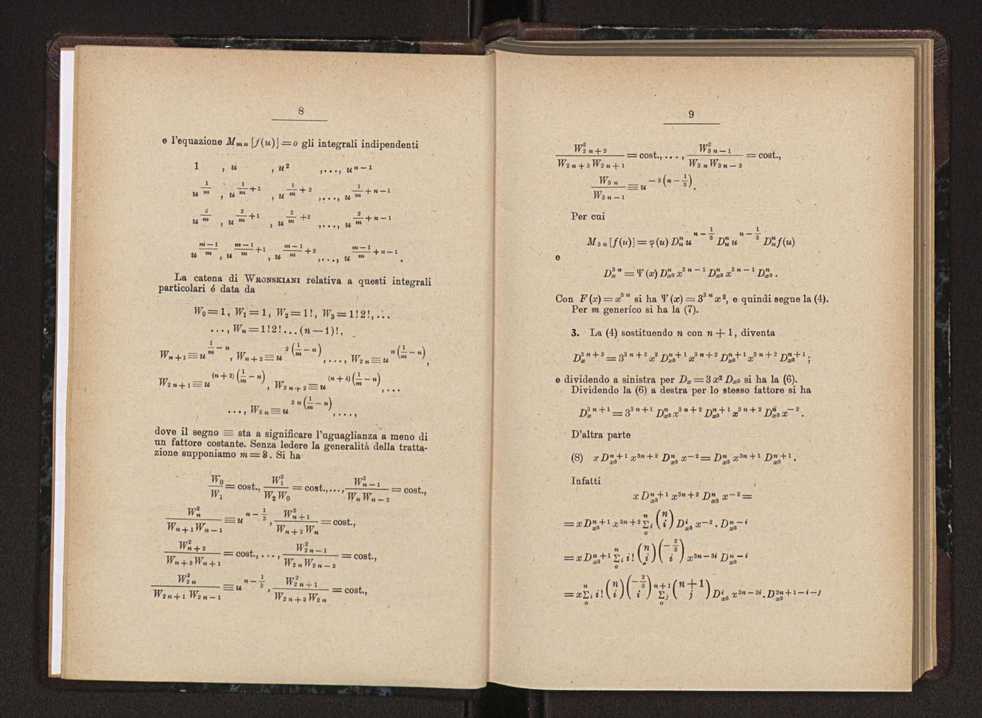 8
e l'equazione M_{m n} [f(u)] = o gli integrali indipendenti
1 , u , u^2 ,..., u^{n-1}
u^{\frac{1}{m}} , u^{\frac{1}{m}+1} , u^{\frac{1}{m}+2} ,..., u^{\frac{1}{m}+n-1}
u^{\frac{2}{m}} , u^{\frac{2}{m}+1} , u^{\frac{2}{m}+2} ,..., u^{\frac{2}{m}+n-1}
u^{\frac{m-1}{m}} , u^{\frac{m-1}{m}+1} , u^{\frac{m-1}{m}+2} ,..., u^{\frac{m-1}{m}+n-1} .
La catena di WRONSKIANI relativa a questi integrali
particolari é data da
W_0 = 1, W_1 = 1, W_2 = 1!, W_3 = 1! 2!, ...
..., W_n = 1! 2! ... (n-1)!.
W_{n+1} ≡ u^{\frac{1}{m}-n} , W_{n+2} ≡ u^{2(\frac{1}{m}-n)} , ..., W_{2n} ≡ u^{n(\frac{1}{m}-n)} ,
W_{2n+1} ≡ u^{(n+2)(\frac{1}{m}-n)} , W_{2n+2} ≡ u^{(n+4)(\frac{1}{m}-n)} , ...
..., W_{3n} ≡ u^{3n(\frac{1}{m}-n)} , ...,
dove il segno ≡ sta a significare l'uguaglianza a meno di
un fattore costante. Senza ledere la generalità della tratta-
zione supponiamo m = 3. Si ha
\frac{W_0}{W_1} = cost., \frac{W_1^2}{W_2 W_0} = cost.,..., \frac{W_{n-1}^2}{W_n W_{n-2}} = cost.,
\frac{W_n^2}{W_{n+1} W_{n-1}} ≡ u^{n-\frac{1}{3}} , \frac{W_{n+1}^2}{W_{n+2} W_n} = cost.,
\frac{W_{n+2}^2}{W_{n+3} W_{n+1}} = cost., ..., \frac{W_{2n-1}^2}{W_{2n} W_{2n-2}} = cost.,
\frac{W_{2n}^2}{W_{2n+1} W_{2n-1}} ≡ u^{n-\frac{1}{3}} , \frac{W_{2n+1}^2}{W_{2n+2} W_{2n}} = cost.,
9
\frac{W_{2n+2}^2}{W_{2n+3} W_{2n+1}} = cost., ..., \frac{W_{3n-1}^2}{W_{3n} W_{3n-2}} = cost.,
\frac{W_{3n}}{W_{3n-1}} ≡ u^{-2(n-\frac{1}{3})} .
Per cui
M_{3n} [f(u)] = φ(u) D_u^n u^{n-\frac{1}{3}} D_u^n u^{n-\frac{1}{3}} D_u^n f(u)
e
D_x^{3n} = Ψ(x) D_{x^3}^n x^{3n-1} D_{x^3}^n x^{3n-1} D_{x^3}^n .
Con F(x) = x^{3n} si ha Ψ(x) = 3^{3n} x^2, e quindi segue la (4).
Per m generico si ha la (7).
3. La (4) sostituendo n con n + 1, diventa
D_x^{3n+3} = 3^{3n+3} x^2 D_{x^3}^{n+1} x^{3n+2} D_{x^3}^{n+1} x^{3n+2} D_{x^3}^{n+1} ;
e dividendo a sinistra per D_x = 3 x^2 D_{x^3} si ha la (6).
Dividendo la (6) a destra per lo stesso fattore si ha
D_x^{3n+1} = 3^{3n+1} D_{x^3}^n x^{3n+2} D_{x^3}^{n+1} x^{3n+2} D_{x^3}^n x^{-2} .
D'altra parte
(8) x D_{x^3}^{n+1} x^{3n+2} D_{x^3}^n x^{-2} = D_{x^3}^n x^{3n+1} D_{x^3}^{n+1} .
Infatti
x D_{x^3}^{n+1} x^{3n+2} D_{x^3}^n x^{-2} =
= x D_{x^3}^{n+1} x^{3n+2} \sum_o^n{}_i \binom{n}{i} D_{x^3}^i x^{-2} . D_{x^3}^{n-i}
= x D_{x^3}^{n+1} \sum_o^n{}_i i! \binom{n}{i} \binom{-\frac{2}{3}}{i} x^{3n-3i} D_{x^3}^{n-i}
= x \sum_o^n{}_i i! \binom{n}{i} \binom{-\frac{2}{3}}{i} \sum_o^{n+1}{}_j \binom{n+1}{j} D_{x^3}^j x^{3n-3i} . D_{x^3}^{2n+1-i-j}